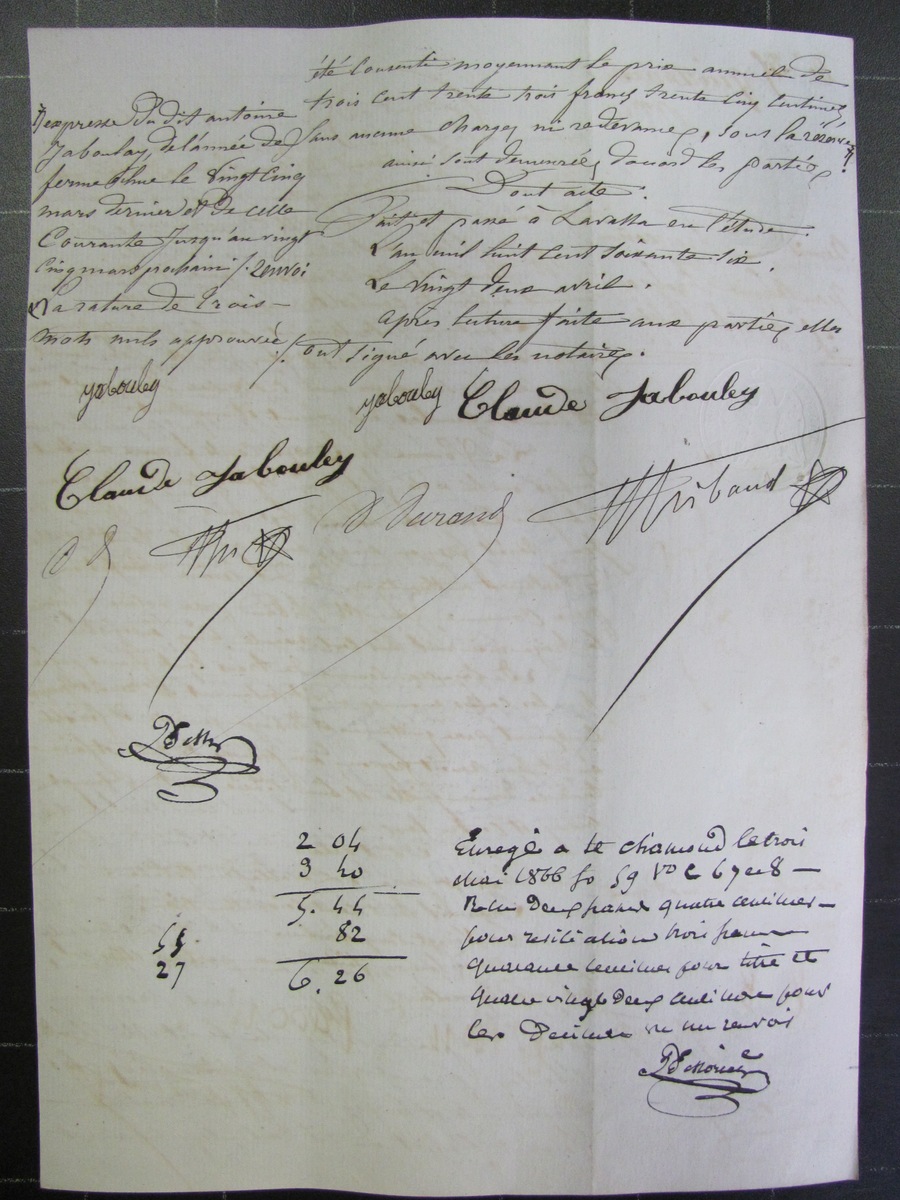 été Consenti moyennant le prix annuel de
trois cent trente trois francs trente cinq centimes
sans aucune charges ni redevances, sous la réserve
ainsi sont demeurées d'accord les parties
Dont acte.
Fait et passé à Lavalla en l'étude.
L'an mil huit cent soixante six.
Le vingt deux avril.
après lecture faite aux parties elles
ont signé avec les notaires.
expresse du dit antoine
Jabouley, de l'année de
ferme échue le vingt cinq
mars dernier et de celle
Courante jusqu'au vingt
cinq mars prochain /. renvoi
La rature de trois
mots nuls approuvée /.
jabouley
jabouley Claude Jabouley
Claude Jabouley
D Durand
Thibaud
2 04
3 40
5. 44
82
6. 26
55
27
Enregé a St chamond le trois
mai 1866 fo 59 Vo C 6 7 et 8
Recu deux francs quatre centimes
pour resiliation trois francs
quarante centimes pour titre et
quatre vingt deux centimes pour
les Decimes un renvois